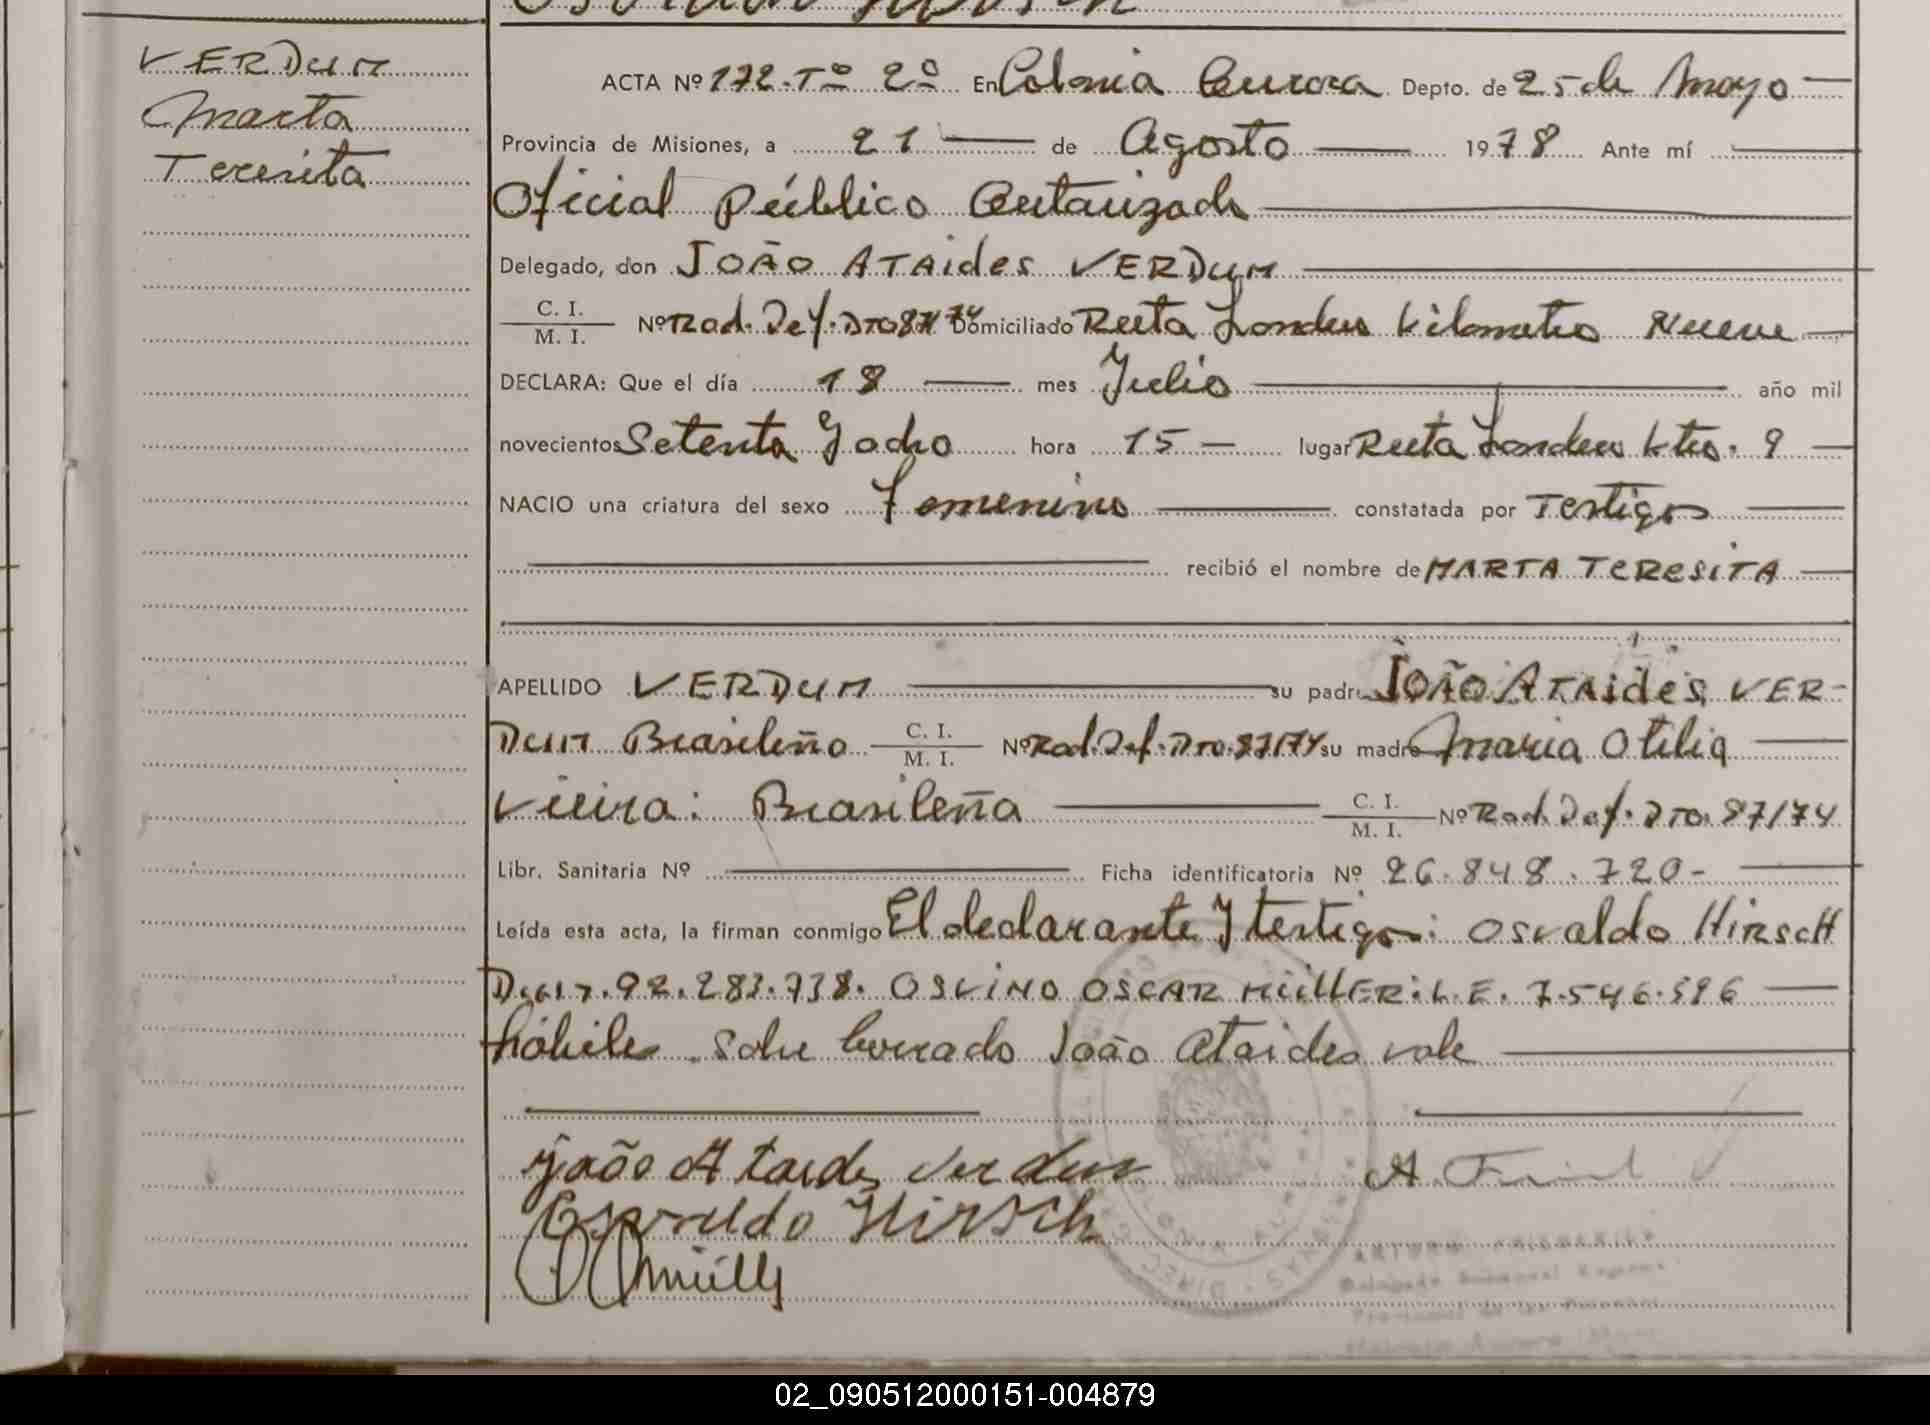 VERDUM
Marta
Teresita
ACTA Nº 172-Tº 2º En Colonia Aurora Depto. de 25 de Mayo
Provincia de Misiones, a 21 de Agosto 1978 Ante mí
Oficial Público Autorizado
Delegado, don JOÃO ATAIDES VERDUM
C. I.
M. I. Nº Rad. Def. DTO 87/74 Domiciliado Ruta Londero Kilometro Nueve
DECLARA: Que el día 18 mes Julio año mil
novecientos Setenta y ocho hora 15 lugar Ruta Londero ktro. 9
NACIO una criatura del sexo Femenino constatada por Testigos
recibió el nombre de MARTA TERESITA
APELLIDO VERDUM su padre JOÃO ATAIDES VER-
DUM Brasileño C. I.
M. I. Nº Rad. Def. DTO. 87/74 su madre Maria Otilia
Vieira: Brasileña C. I.
M. I. Nº Rad. Def. DTO. 87/74
Libr. Sanitaria Nº Ficha identificatoria Nº 26.848.720-
Leída esta acta, la firman conmigo El declarante y testigos: Osvaldo HIRSCH
92.283.738. OSVINO OSCAR MÜLLER: L.E. 7.546.596
hábiles. Sobre borrado João Ataides vale
João Ataides Verdum
Osvaldo Hirsch
O O Müller
02_090512000151-004879